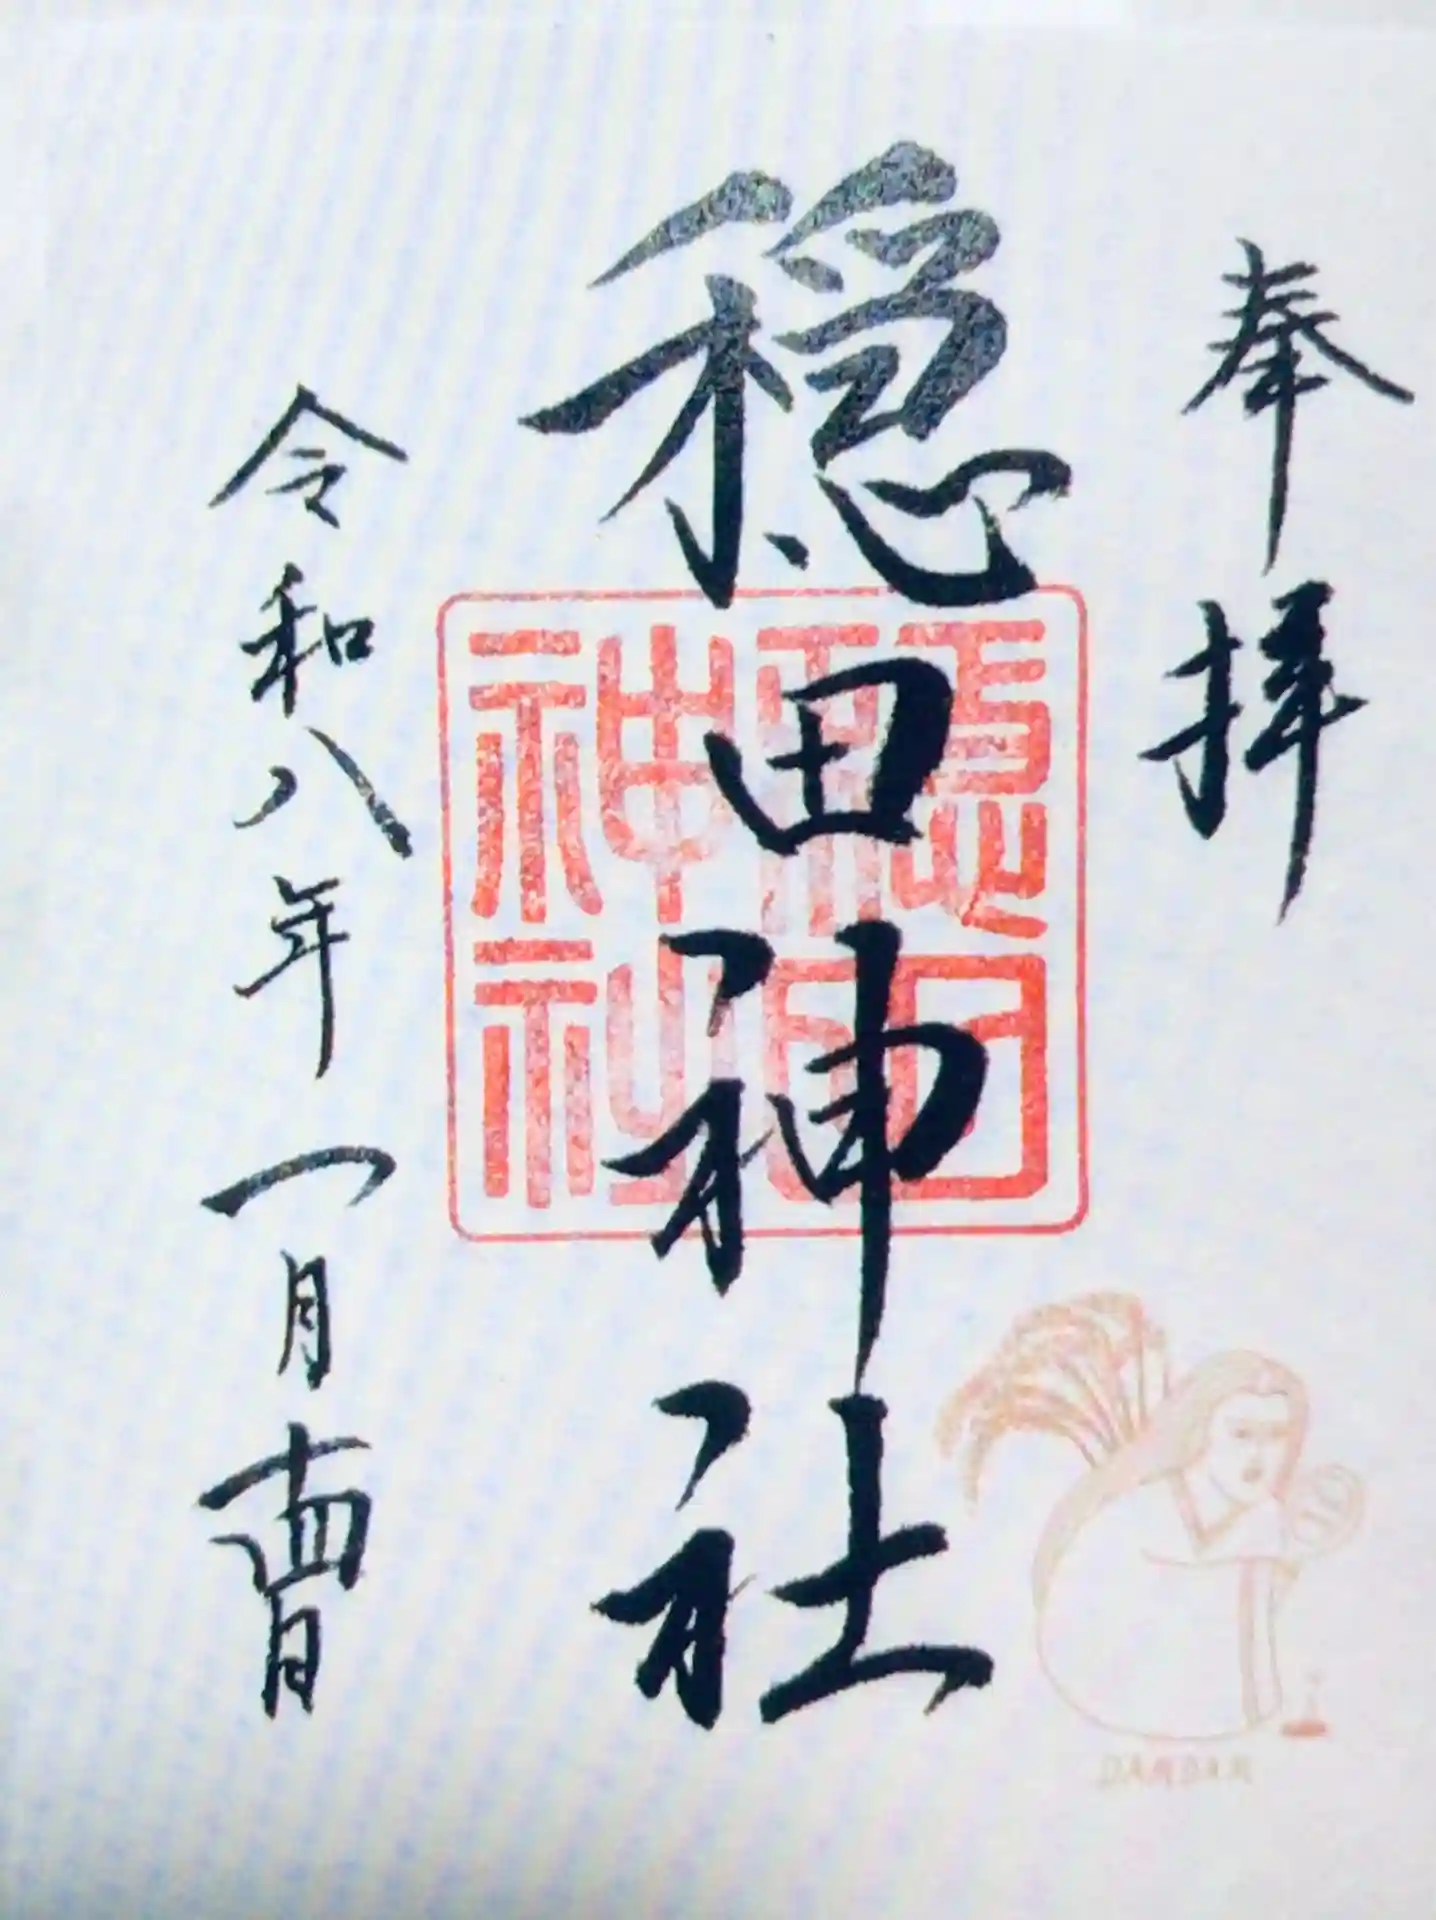 奉拝
穏田神社
穏田
神社
令和八年一月十四日
DAMDAM